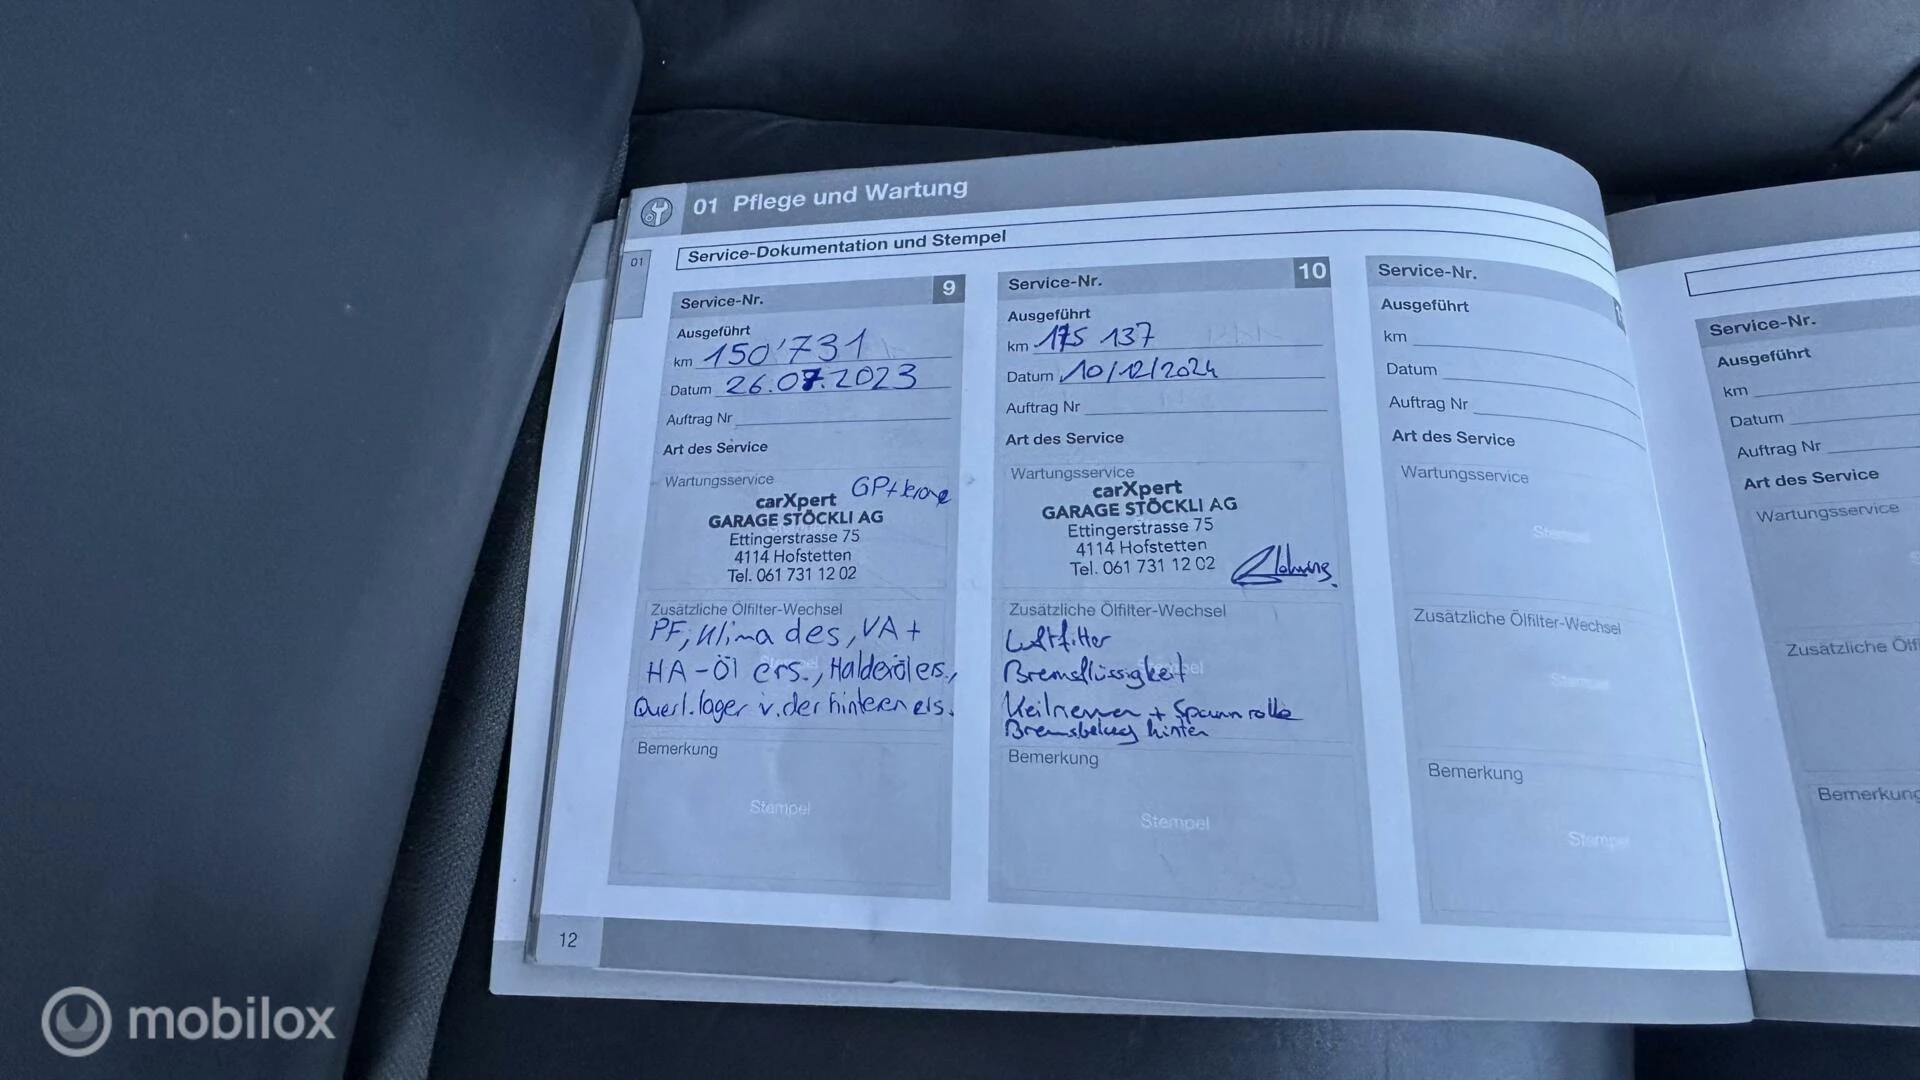 01 Pflege und Wartung
01
Service-Dokumentation und Stempel
Service-Nr. 9
Ausgeführt
km 150'731
Datum 26.07.2023
Auftrag Nr
Art des Service
Wartungsservice
carXpert
GARAGE STÖCKLI AG
Ettingerstrasse 75
4114 Hofstetten
Tel. 061 731 12 02
Zusätzliche Ölfilter-Wechsel
PF, Klima des, VA +
HA-Öl ers., Halderöl ers.,
Querl.lager v. der hinteren ers.
Bemerkung
Stempel
12
Service-Nr. 10
Ausgeführt
km 175 137
Datum 10/12/2024
Auftrag Nr
Art des Service
Wartungsservice
carXpert
GARAGE STÖCKLI AG
Ettingerstrasse 75
4114 Hofstetten
Tel. 061 731 12 02
Zusätzliche Ölfilter-Wechsel
Luftfilter
Bremsflüssigkeit
Keilriemen + Spannrolle
Bremsbelag hinten
Bemerkung
Stempel
Service-Nr.
Ausgeführt
km
Datum
Auftrag Nr
Art des Service
Wartungsservice
Stempel
Zusätzliche Ölfilter-Wechsel
Stempel
Bemerkung
Stempel
Service-Nr.
Ausgeführt
km
Datum
Auftrag Nr
Art des Service
Wartungsservice
Zusätzliche Ölfi
Bemerkung
mobilox